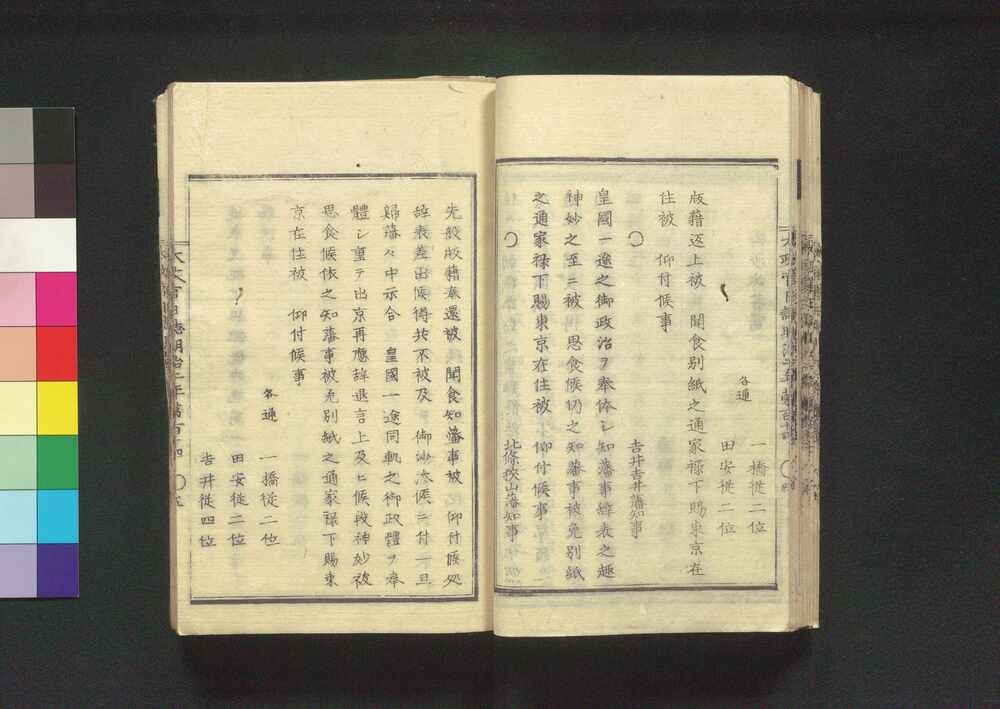 一橋従二位
各通
田安従二位
版籍返上被 聞食別紙之通家禄下賜東京在
住被 仰付候事
〇
吉井吉井藩知事
皇國一途之御政治ヲ奉体シ知藩事辞表之趣
神妙之至ニ被 思食候仍之知藩事被免別紙
之通家禄下賜東京在住被 仰付候事
〇
北條狭山藩知事
先般版籍奉還被 聞食知藩事被 仰付候処
辞表差出候得共不被及 御沙汰候ニ付一旦
歸藩々中示合 皇國一途同軌之御政體ヲ奉
體シ重テ出京再應辞退言上及ヒ候段神妙被
思食候依之知藩事被免別紙之通家禄下賜東
京在住被 仰付候事
各通
一橋従二位
田安従二位
吉井従四位
太政官日誌明治二年第百十四